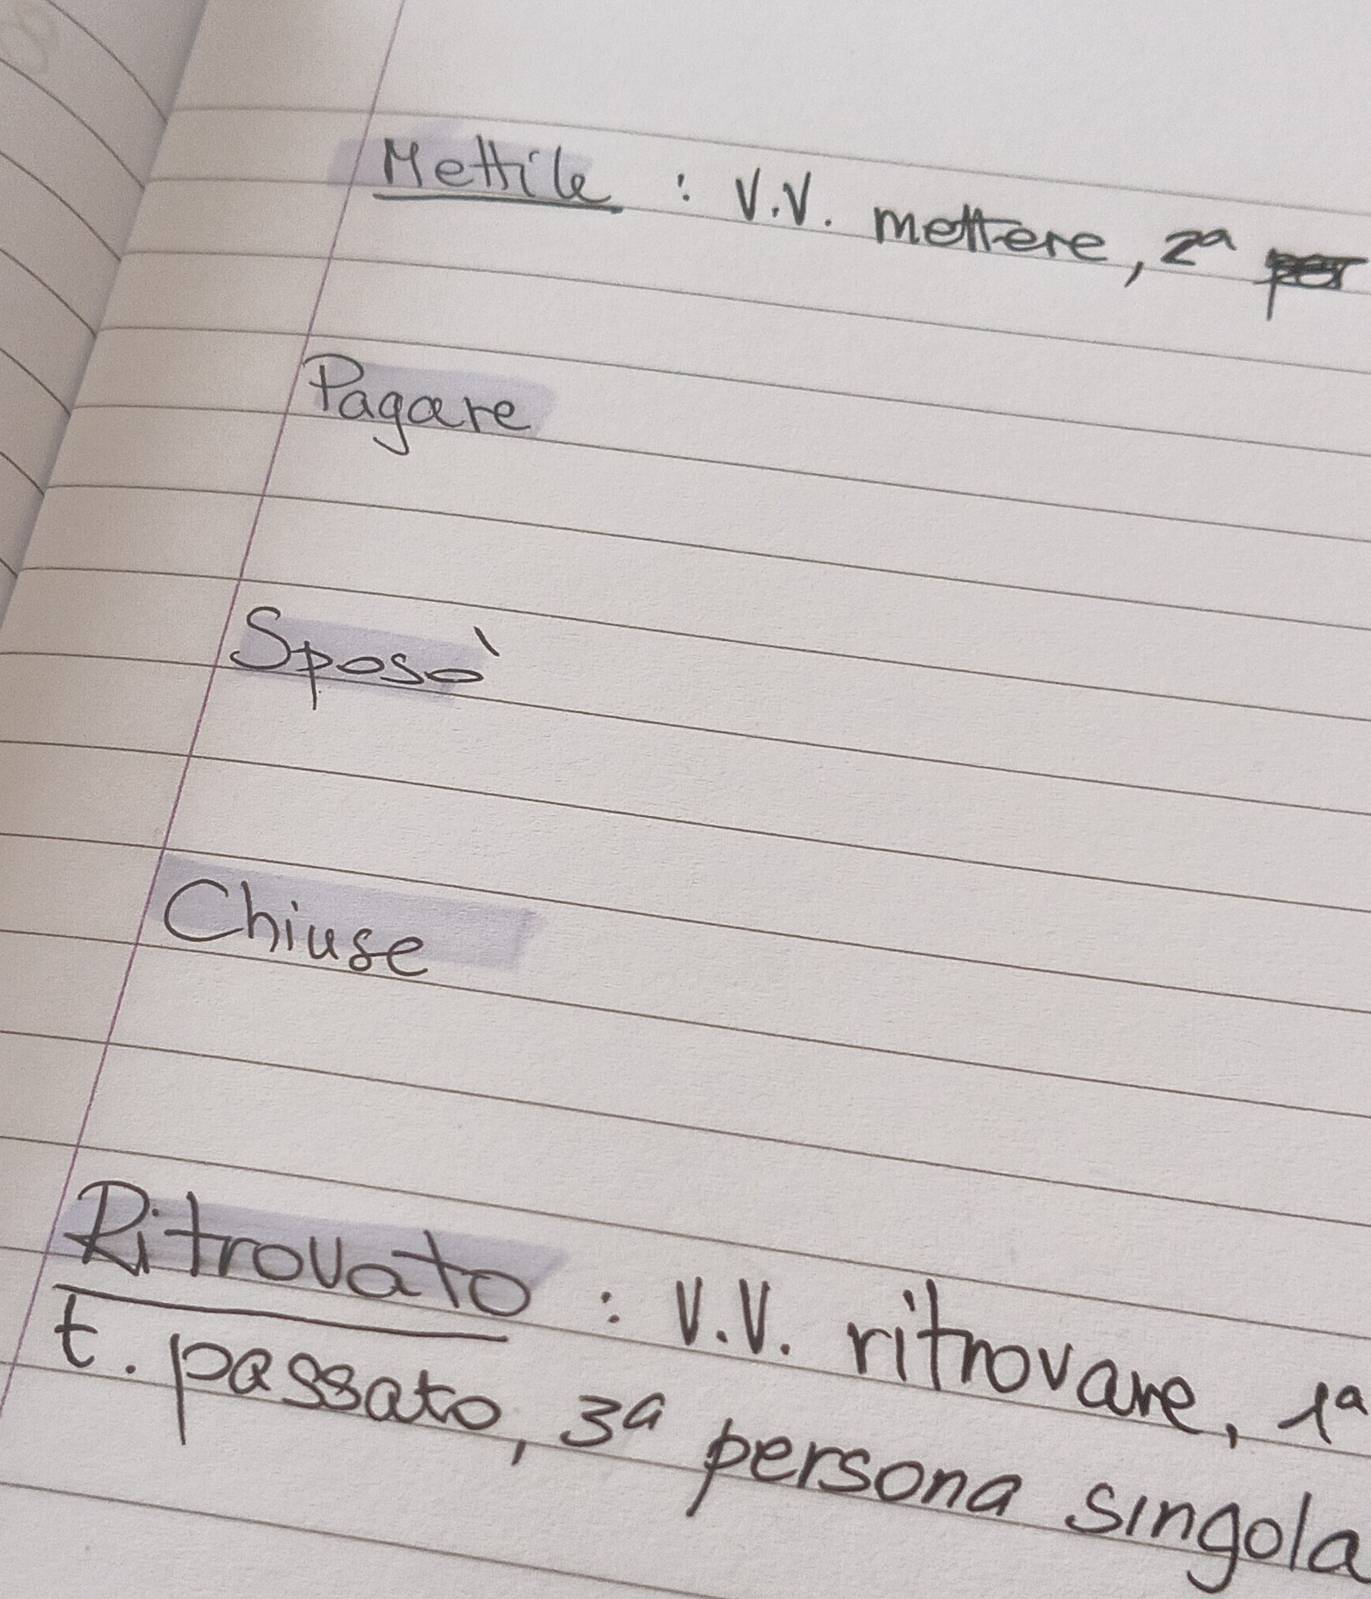 Mettile : V.V. mettere, 2ª
Pagare
Sposò
Chiuse
Ritrovato : V.V. ritrovare, 1ª
t. passato, 3ª persona singola